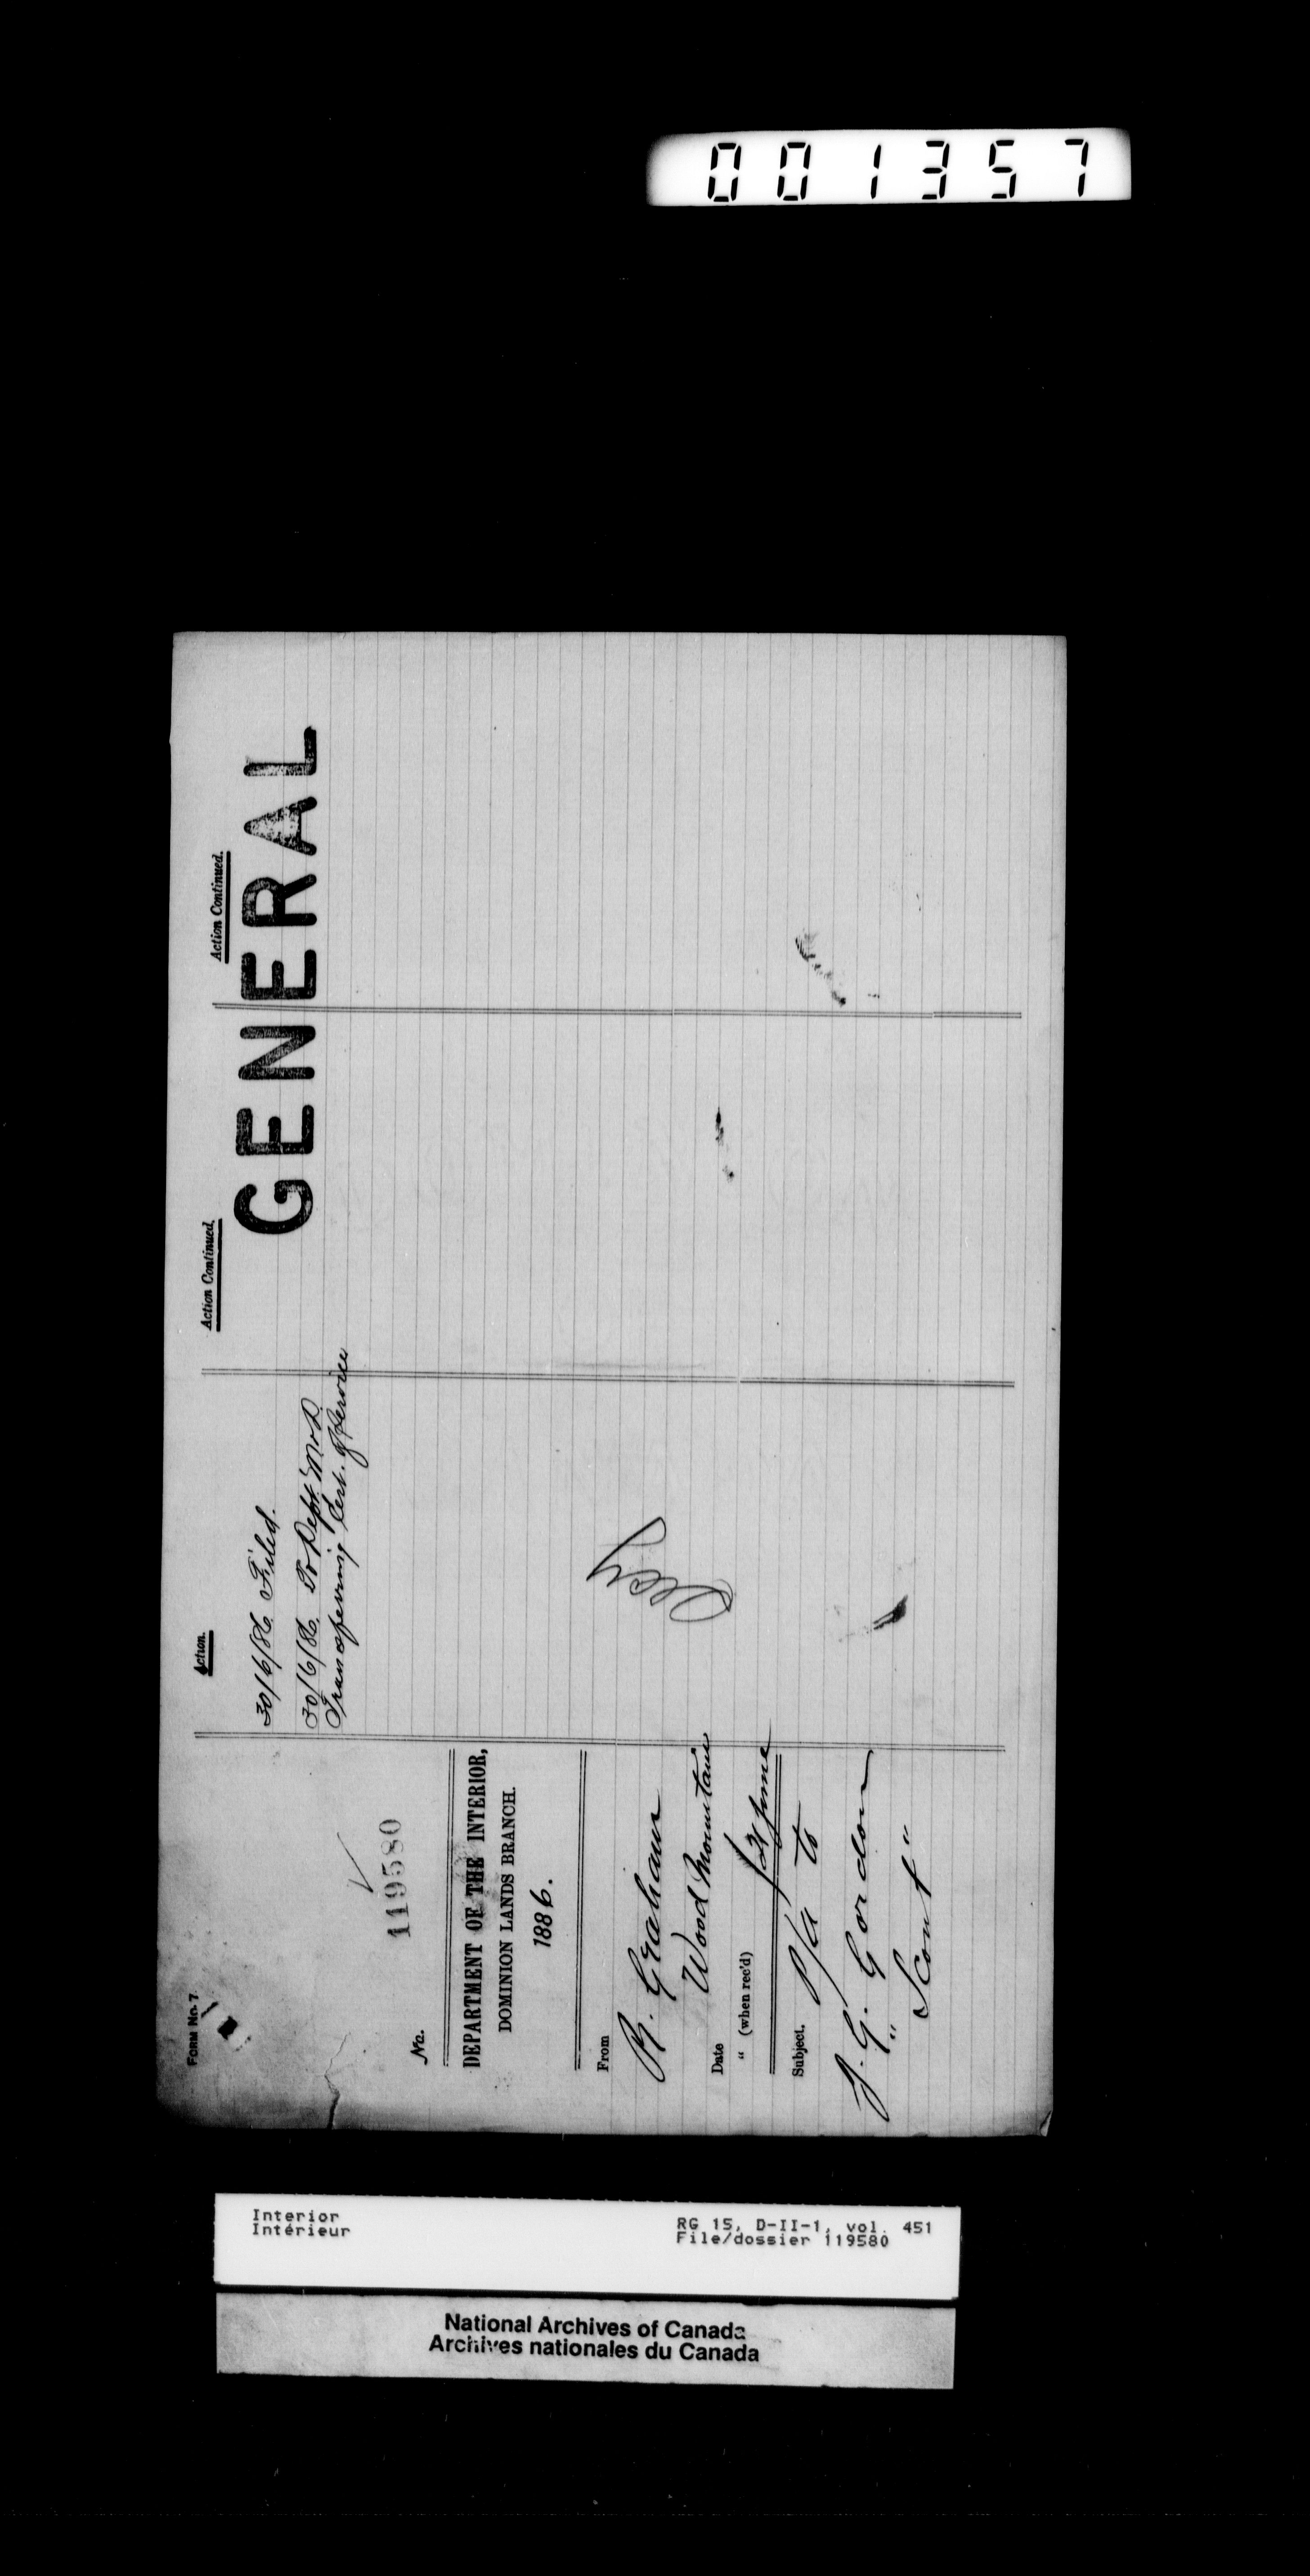 001357
FORM No. 7
No. 119580
DEPARTMENT OF THE INTERIOR,
DOMINION LANDS BRANCH.
1886.
From
R. Graham
Wood Mountain
Date
" (when rec'd) June
Subject. P/A to
J. G. Gordon
" Scout "
Action.
30/6/86. Filed.
30/6/86. To Dept M & D
Transferring Cert. of Service
Action Continued.
Action Continued.
GENERAL
Interior
Intérieur
RG 15, D-II-1, vol. 451
File/dossier 119580
National Archives of Canada
Archives nationales du Canada